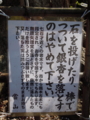 石を投げたり、棒で
つついて銀杏を落とす
のはやめて下さい。